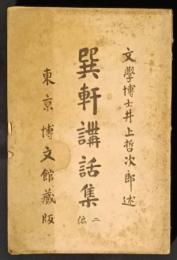 文學博士井上哲次郎述
巽軒講話集
二
東京博文館藏版